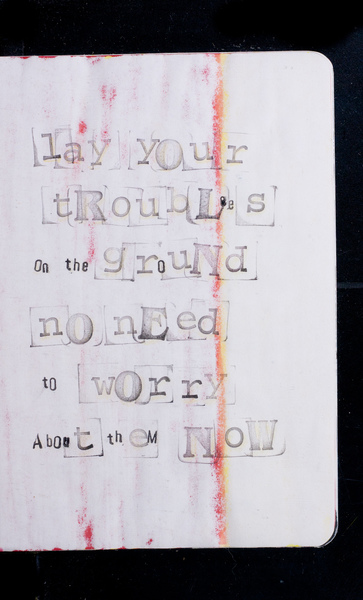 lay yOur
tRoubLes
On the grOuNd
nO nEed
tO wOrry
AbOut theM NoW